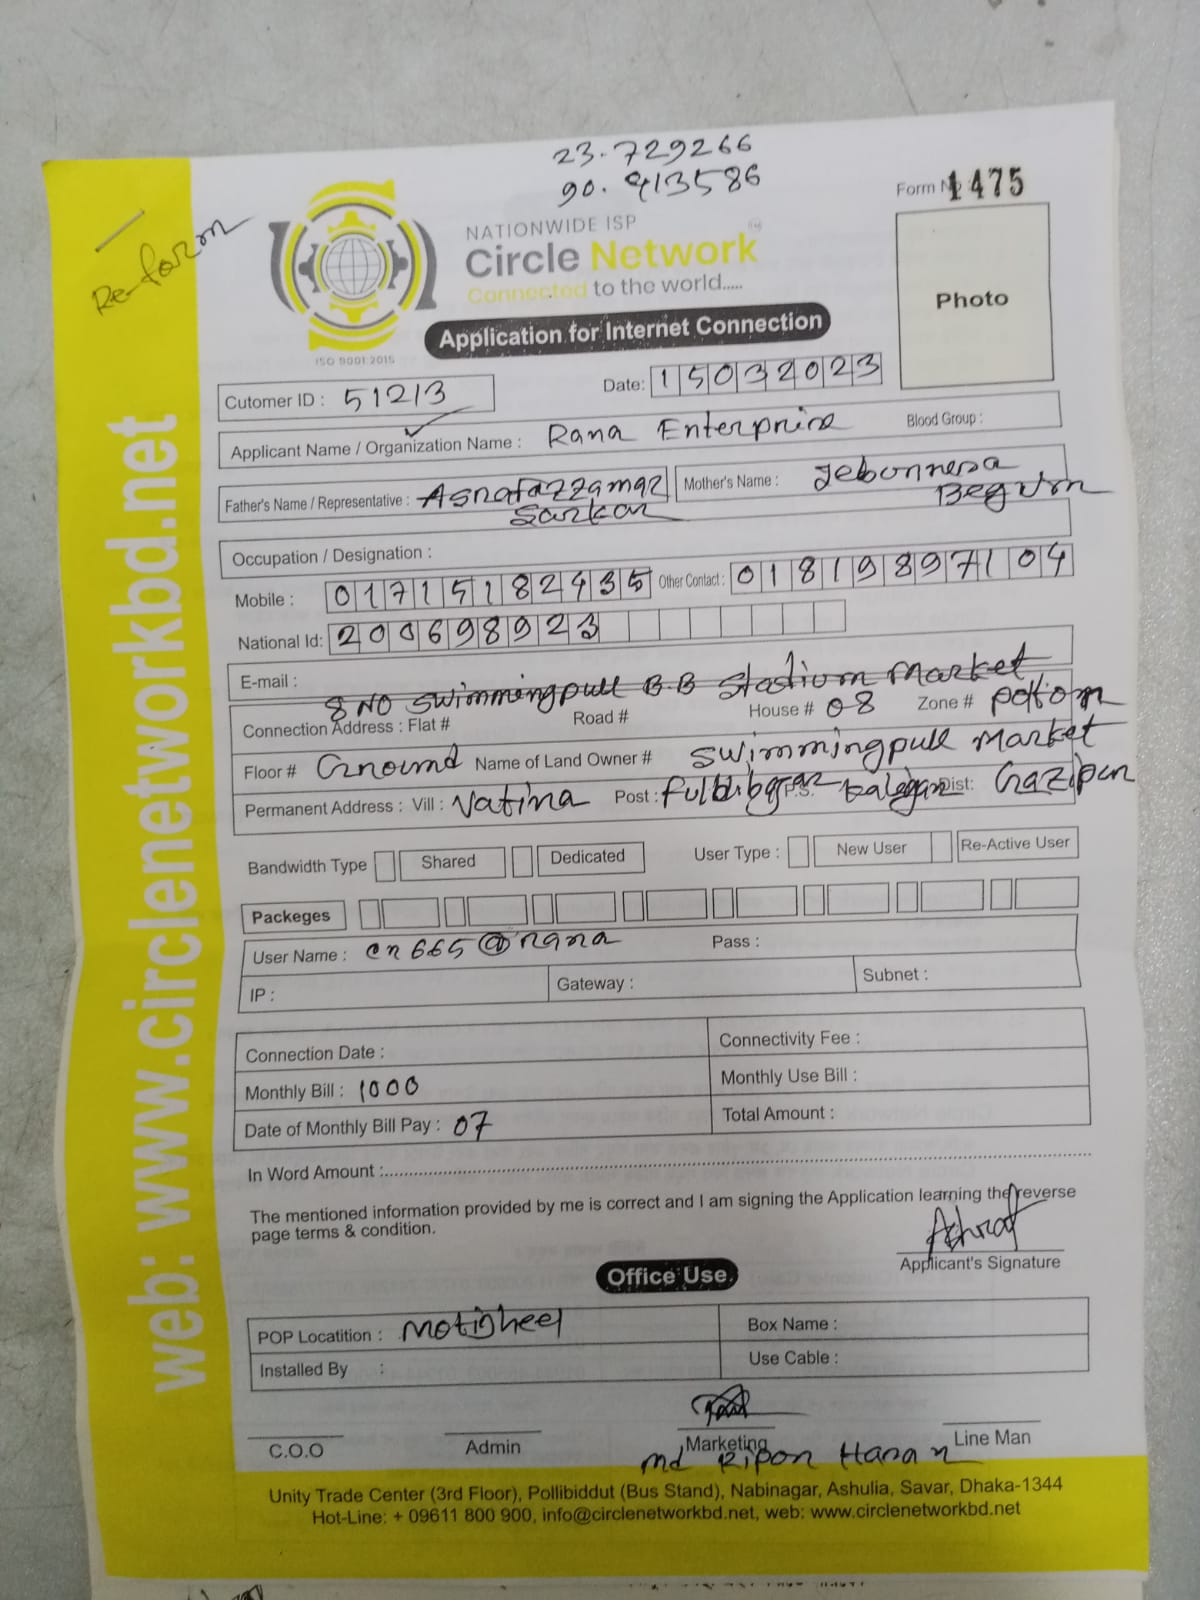 23.729266
90.413586
Form No 1475
Re-form
NATIONWIDE ISP
Circle Network
Connected to the world.....
ISO 9001:2015
Application for Internet Connection
Photo
Cutomer ID : 51213
Date: 15032023
Applicant Name / Organization Name : Rana Enterprise Blood Group :
Father's Name / Representative : Asrafazzamaz Sarkar
Mother's Name : Jebonnesa Begum
Occupation / Designation :
Mobile : 01715182435 Other Contact : 01819897104
National Id: 200698923
E-mail :
8 NO Swimmingpull B.B Stadium Market
Connection Address : Flat # Road # House # 08 Zone # Polton
Floor # Ground Name of Land Owner # Swimmingpull Market
Permanent Address : Vill : Vatira Post : P.S. : Dist: Gazipur
Bandwidth Type Shared Dedicated User Type : New User Re-Active User
Packeges
User Name : cn665@rana Pass :
IP : Gateway : Subnet :
Connection Date : Connectivity Fee :
Monthly Bill : 1000 Monthly Use Bill :
Date of Monthly Bill Pay : 07 Total Amount :
In Word Amount :
The mentioned information provided by me is correct and I am signing the Application learning the reverse
page terms & condition.
Ashraf
Applicant's Signature
Office Use
POP Locatition : Motijheel Box Name :
Installed By : Use Cable :
C.O.O Admin Marketing Line Man
Md Ripon Hasan
Unity Trade Center (3rd Floor), Pollibiddut (Bus Stand), Nabinagar, Ashulia, Savar, Dhaka-1344
Hot-Line: + 09611 800 900, info@circlenetworkbd.net, web: www.circlenetworkbd.net
web: www.circlenetworkbd.net